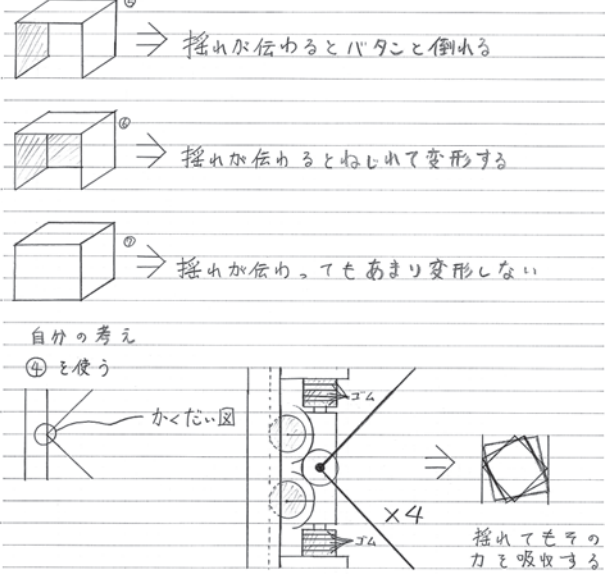 ⑤
揺れが伝わるとバタンと倒れる
⑥
揺れが伝わるとねじれて変形する
⑦
揺れが伝わってもあまり変形しない
自分の考え
④を使う
かくだい図
ゴム
ゴム
×4
揺れてもその
力を吸収する